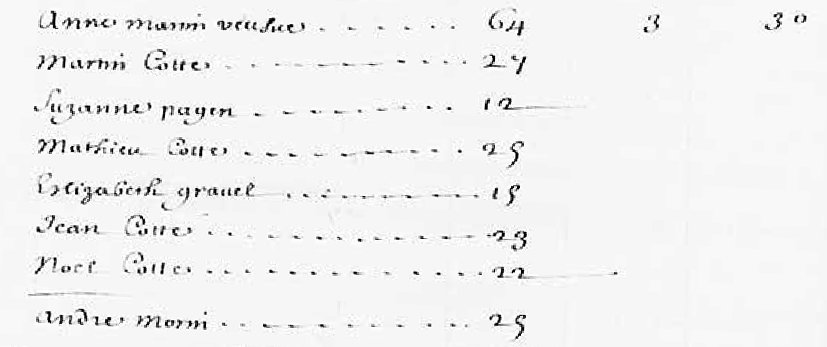 Anne martin veufue . . . . . . . 64 3 30
Martin Cotte . . . . . . . . . . 27
Suzanne pagen . . . . . . . . . 12
Mathieu Cotte . . . . . . . . . 25
Elizabeth grauel . . . . . . . . 15
Jean Cotte . . . . . . . . . . . 23
Noel Cotte . . . . . . . . . . . 22
Andre morin . . . . . . . . . . 25